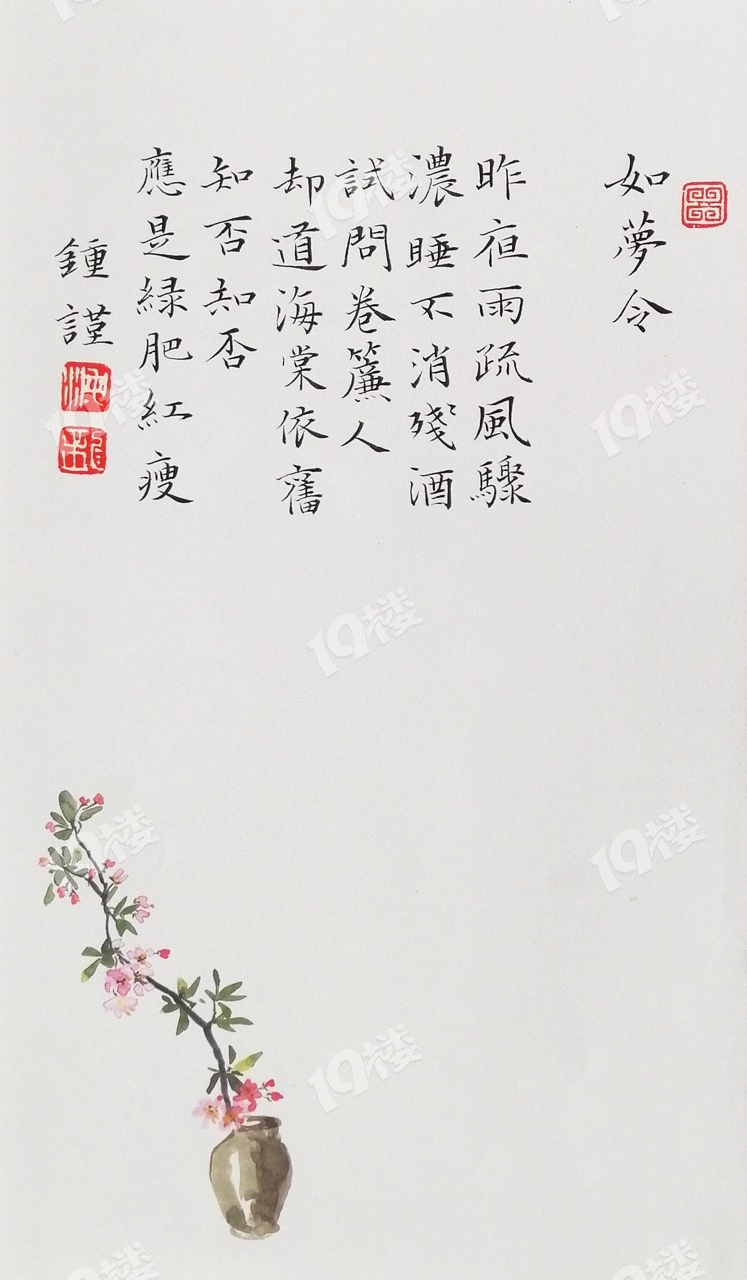 如夢令
昨夜雨疏風驟
濃睡不消殘酒
試問卷簾人
却道海棠依舊
知否知否
應是緑肥紅瘦
鍾謹
19楼
19楼
19楼
19楼
19楼
19楼
19楼
19楼
19楼
19楼
19楼